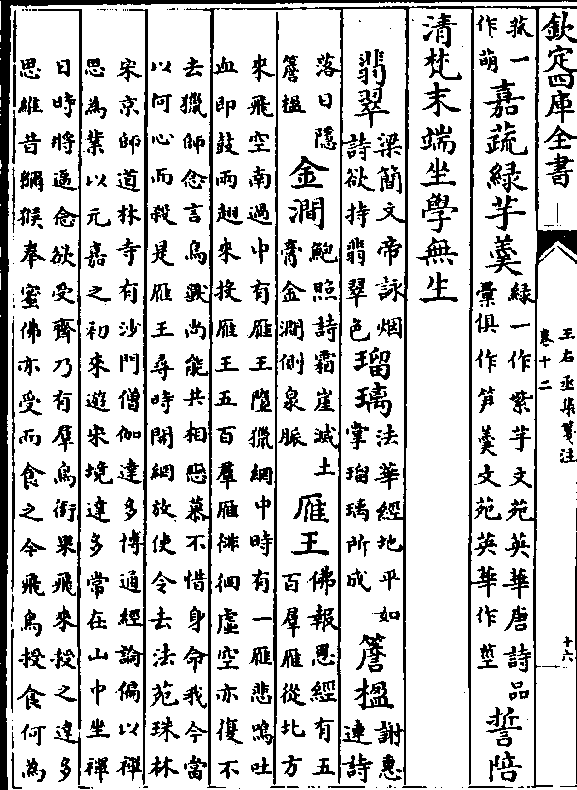 欽定四庫全書
王右丞集箋注
卷十二
十六
菰一作萌嘉蔬綠芋羹綠一作紫芋文苑英華唐詩品彙俱作筍羹文苑英華作莖誓陪
清梵末端坐學無生
翡翠梁簡文帝詠烟詩欲持翡翠色瑠璃法華經地平如掌瑠璃所成簷楹謝惠連詩
落日隱簷楹金澗鮑照詩霜崖滅土膏金澗側泉脈雁王佛報恩經有五百羣雁從北方
來飛空南過中有雁王墮獵網中時有一雁悲鳴吐
血即鼓兩翅來投雁王五百羣雁徘徊虛空亦復不
去獵師念言鳥獸尚能共相戀慕不惜身命我今當
以何心而殺是雁王尋時開網放使令去法苑珠林
宋京師道林寺有沙門僧伽達多博通經論偏以禪
思為業以元嘉之初來遊宋境達多常在山中坐禪
日時將逼念欲受齋乃有羣鳥銜果飛來授之達多
思維昔獮猴奉蜜佛亦受而食之今飛鳥授食何為